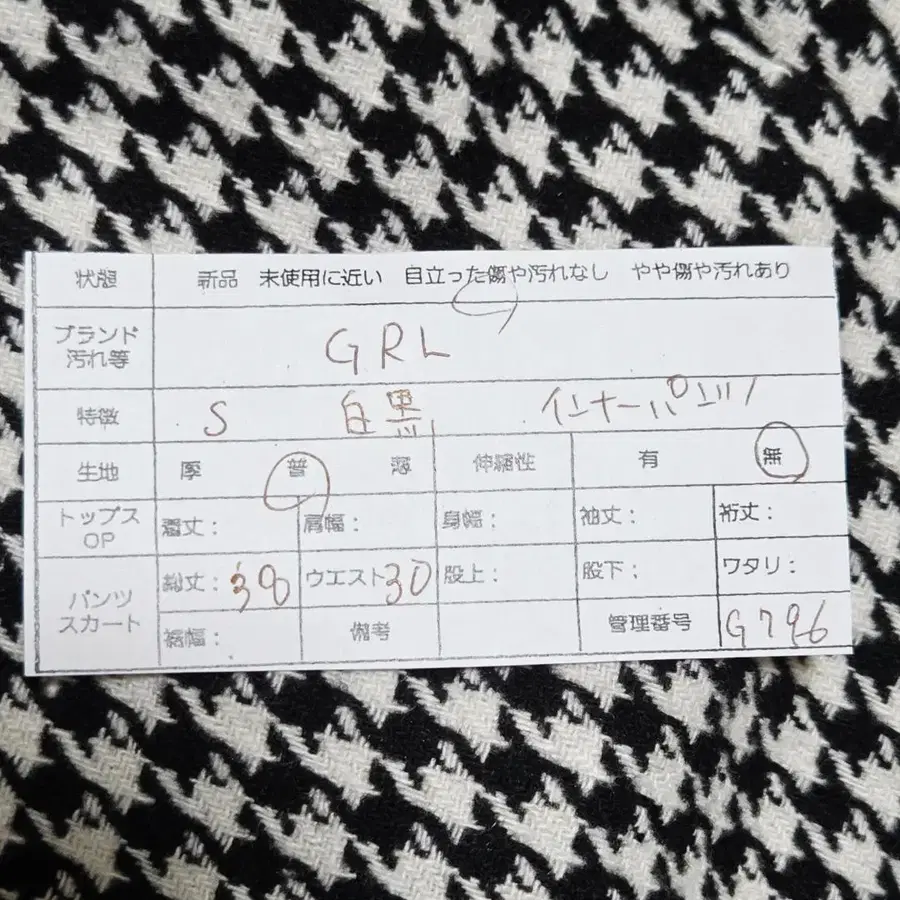 状態 新品 未使用に近い 目立った傷や汚れなし やや傷や汚れあり
ブランド
汚れ等
GRL
特徴 S 白黒 インナーパンツ
生地 厚 普 薄 伸縮性 有 無
トップス
OP
着丈: 肩幅: 身幅: 袖丈: 裄丈:
パンツ
スカート
総丈: 38 ウエスト 30 股上: 股下: ワタリ:
裾幅: 備考 管理番号 G796